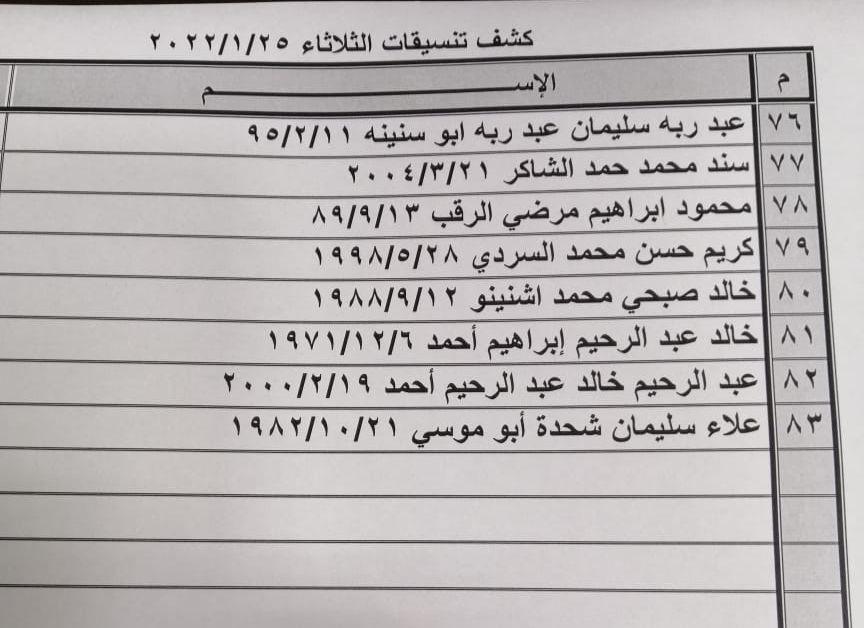 كشف تنسيقات الثلاثاء ٢٠٢٢/١/٢٥
م الإســـــــــم
٧٦ عبد ربه سليمان عبد ربه ابو سنينه ٩٥/٢/١١
٧٧ سند محمد حمد الشاكر ٢٠٠٤/٣/٢١
٧٨ محمود ابراهيم مرضي الرقب ٨٩/٩/١٣
٧٩ كريم حسن محمد السردي ١٩٩٨/٥/٢٨
٨٠ خالد صبحي محمد اشنينو ١٩٨٨/٩/١٢
٨١ خالد عبد الرحيم إبراهيم أحمد ١٩٧١/١٢/٦
٨٢ عبد الرحيم خالد عبد الرحيم أحمد ٢٠٠٠/٢/١٩
٨٣ علاء سليمان شحدة أبو موسي ١٩٨٢/١٠/٢١